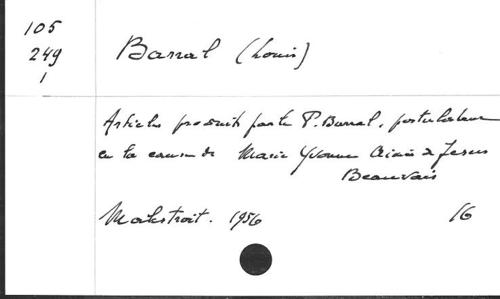 105
249
1
Barral (Louis)
Articles produits par le P. Barral, postulateur
en la cause de Marie Yvonne Aimée de Jesus
Beauvais
Malestroit. 1956
16